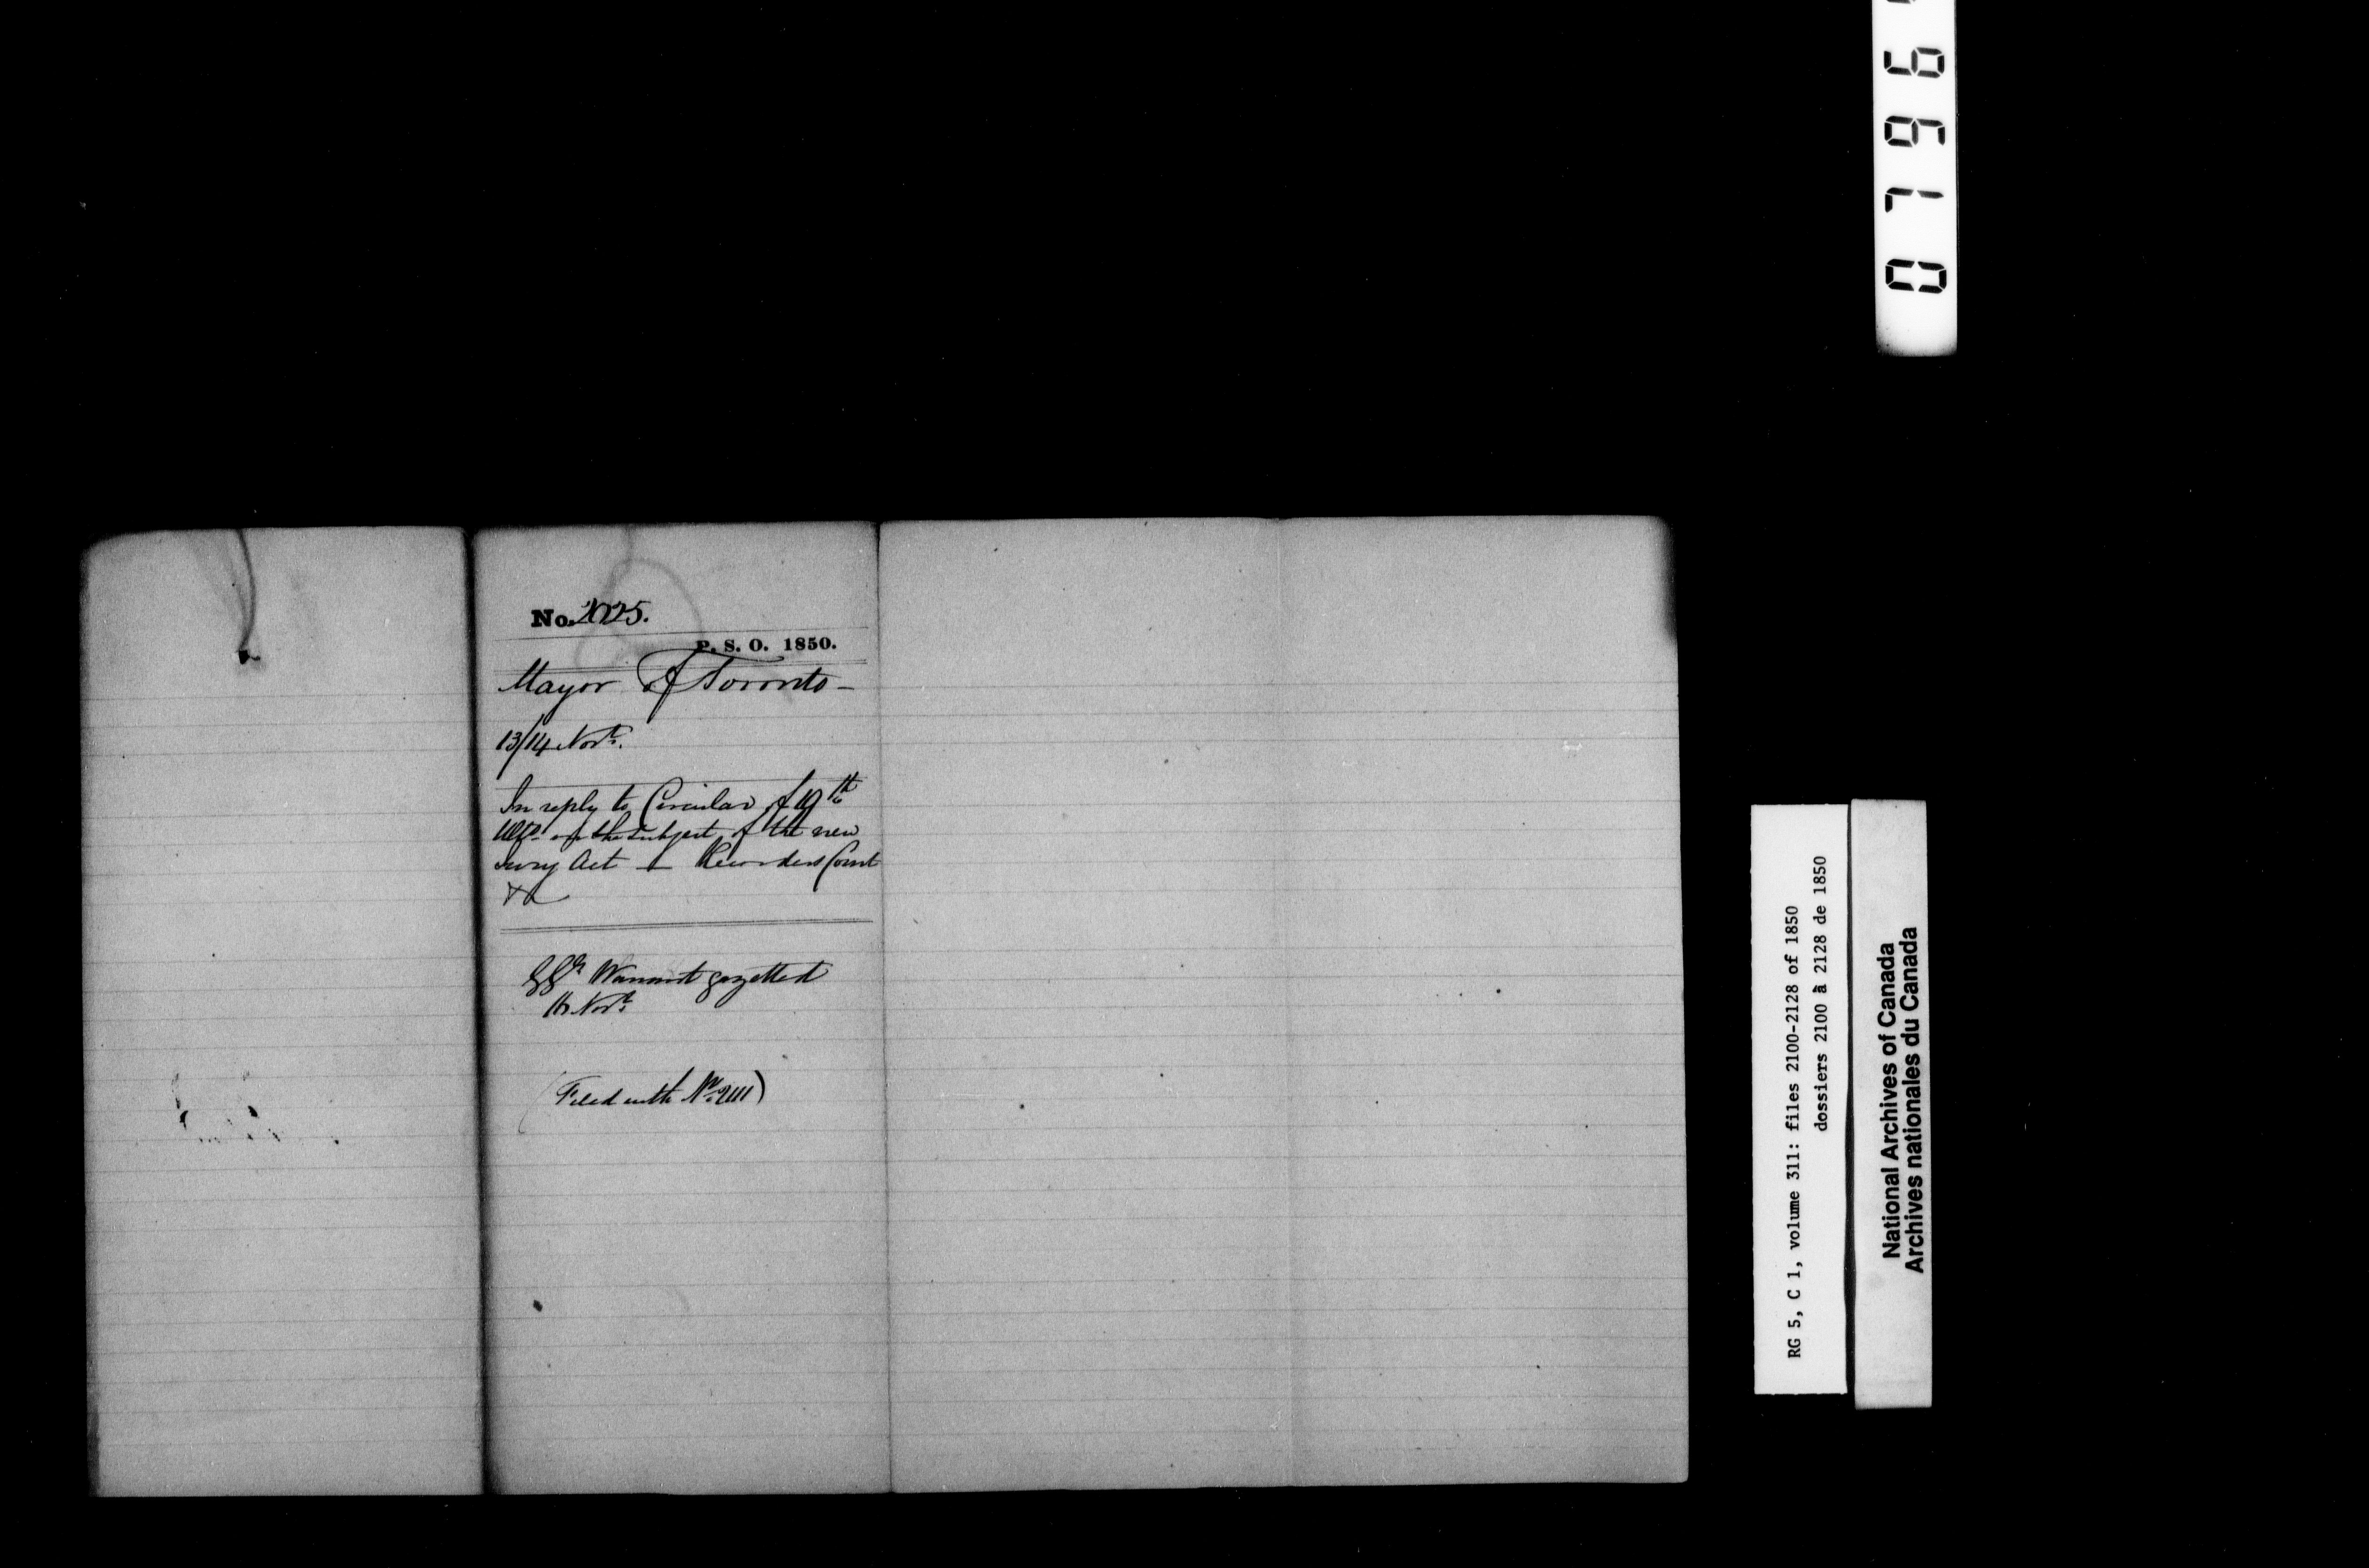 No. 2125.
P. S. O. 1850.
Mayor of Toronto –
13/14 Novr.
In reply to Circular of 19th
Ulto. on the subject of the new
Jury Act — Recorders Court
&c
GGs Warrant gazetted
16 Novr.
(Filed with No. 2111)
0796
RG 5, C 1, volume 311: files 2100-2128 of 1850
dossiers 2100 à 2128 de 1850
National Archives of Canada
Archives nationales du Canada